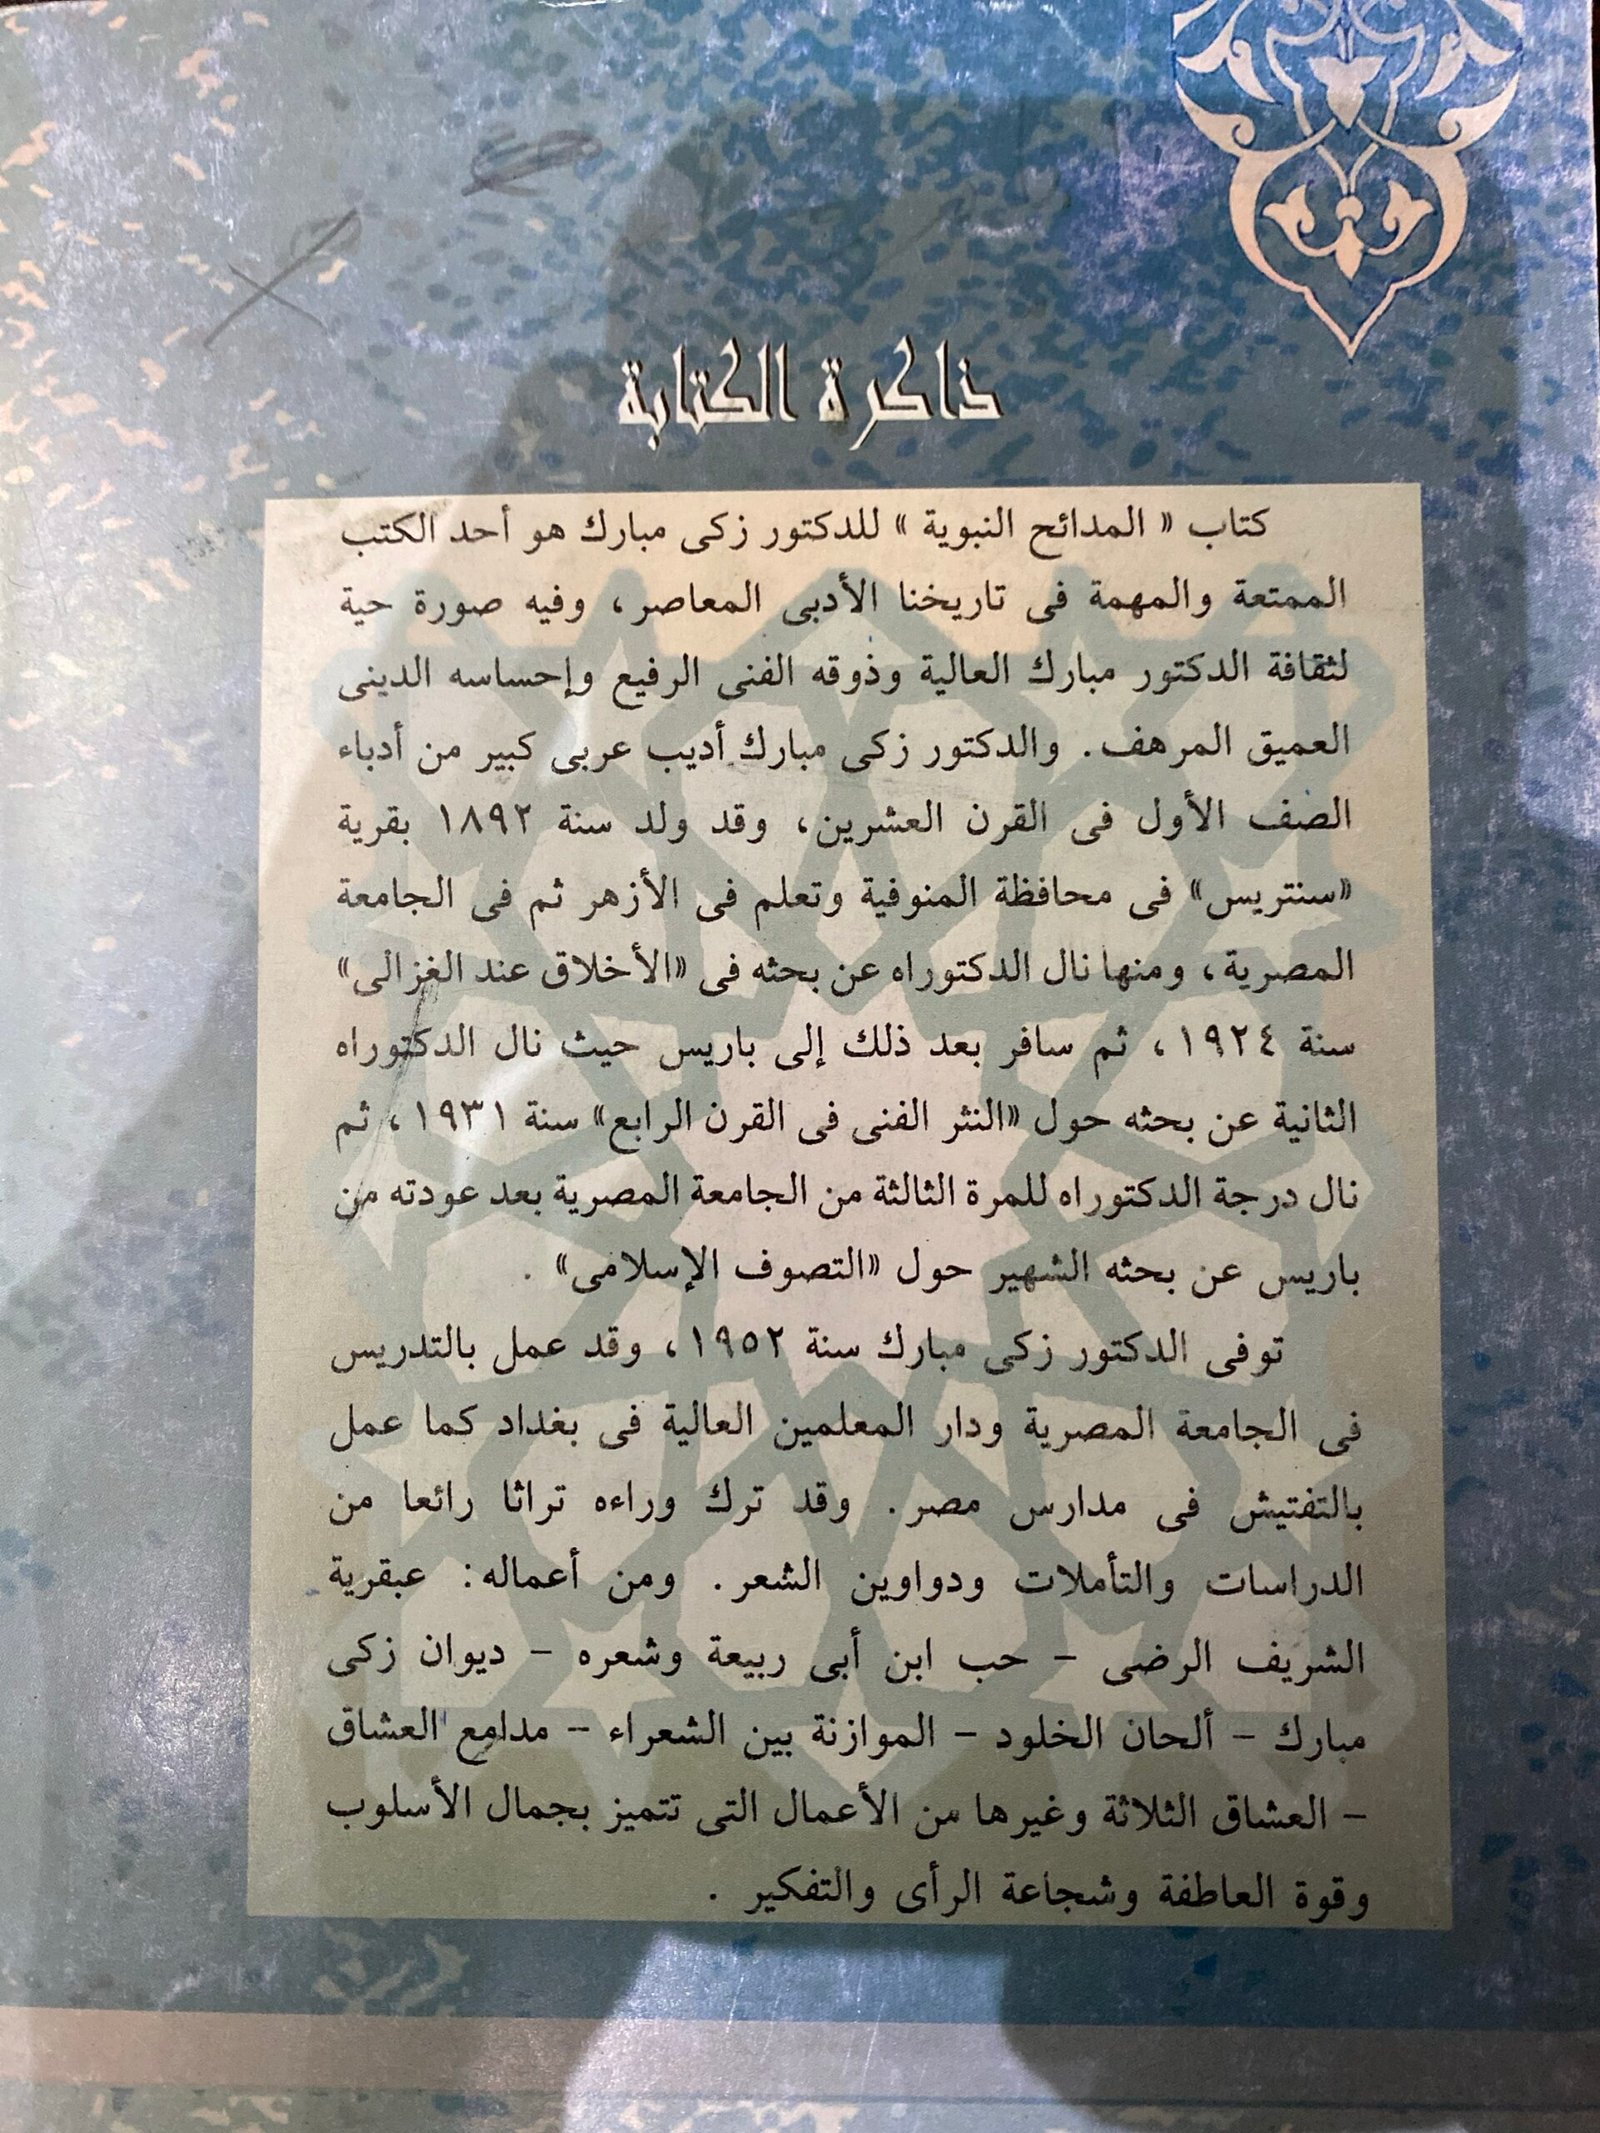 ذاكرة الكتابة
كتاب « المدائح النبوية » للدكتور زكى مبارك هو أحد الكتب
الممتعة والمهمة فى تاريخنا الأدبى المعاصر ، وفيه صورة حية
لثقافة الدكتور مبارك العالية وذوقه الفنى الرفيع وإحساسه الدينى
العميق المرهف . والدكتور زكى مبارك أديب عربى كبير من أدباء
الصف الأول فى القرن العشرين ، وقد ولد سنة ١٨٩٢ بقرية
«سنتريس» فى محافظة المنوفية وتعلم فى الأزهر ثم فى الجامعة
المصرية ، ومنها نال الدكتوراه عن بحثه فى «الأخلاق عند الغزالى»
سنة ١٩٢٤ ، ثم سافر بعد ذلك إلى باريس حيث نال الدكتوراه
الثانية عن بحثه حول «النثر الفنى فى القرن الرابع» سنة ١٩٣١ ، ثم
نال درجة الدكتوراه للمرة الثالثة من الجامعة المصرية بعد عودته من
باريس عن بحثه الشهير حول «التصوف الإسلامى» .
توفى الدكتور زكى مبارك سنة ١٩٥٢ ، وقد عمل بالتدريس
فى الجامعة المصرية ودار المعلمين العالية فى بغداد كما عمل
بالتفتيش فى مدارس مصر . وقد ترك وراءه تراثا رائعا من
الدراسات والتأملات ودواوين الشعر . ومن أعماله : عبقرية
الشريف الرضى - حب ابن أبى ربيعة وشعره - ديوان زكى
مبارك - ألحان الخلود - الموازنة بين الشعراء - مدامع العشاق
- العشاق الثلاثة وغيرها من الأعمال التى تتميز بجمال الأسلوب
وقوة العاطفة وشجاعة الرأى والتفكير .